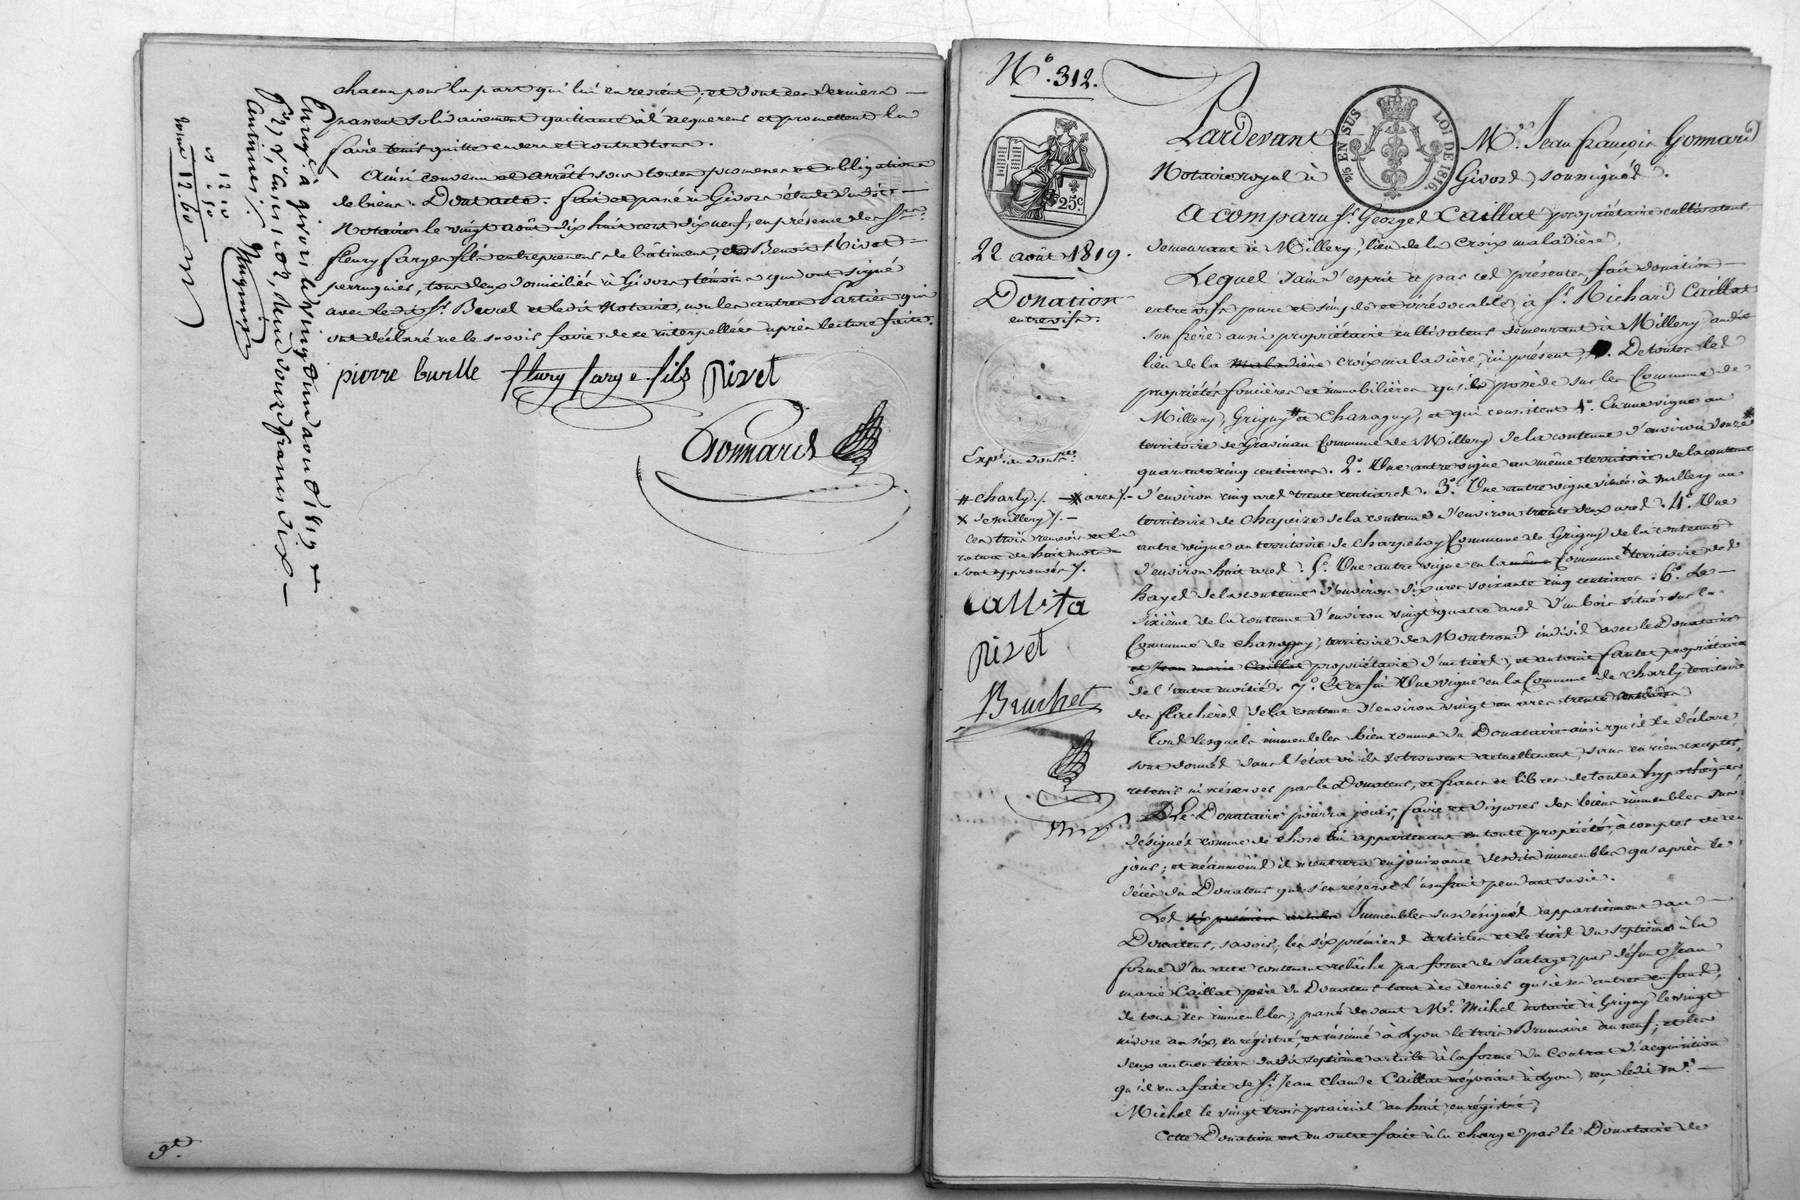 chacun pour la part qui lui en revient; et dont ces derniers
passent solidairement quittance à l'acquereur et promettent la
faire tenir quitte envers et contre tous.
Ainsi convenu et arrêté sous toutes promesses et obligations
de biens. Dont acte. fait et passé à Givors étude dudit
Notaire le vingt août dix huit cent dix neuf, en présence de Srs
fleury farge fils entrepreneur de bâtiment, et Benoit Rivet
perruquier, tous deux domiciliés à Givors témoins qui ont signé
avec ledit Sr. et ledit Notaire, non les autres Parties qui
ont déclaré ne le savoir faire de ce interpellées après lecture faite.
pierre flury farge fils Rivet
Gonnard
Enregé à givors le vingt un août 1819
reçu douze francs dix
centimes
12 10
12.60
Nº. 312.
EN SUS LOI DE 1816.
25c
22 août 1819.
Donation
entrevifs.
Pardevant Me. Jean françois Gonnard
Notaire royal à Givors, soussigné.
A comparu Sr. George Caillat propriétaire cultivateur
demeurant à Millery, lieu de la Croix maladière,
Lequel sain d'esprit et par ces présentes, fait donation
entrevifs pure et simple et irrévocable, à Sr. Richard Caillat
son frère aussi propriétaire cultivateur demeurant à Millery audit
lieu de la maladière croix maladière, ici présent, De toutes les
propriétés foncières et immobilières qu'il possède sur les Communes de
Millery, Grigny # et Chanagny, et qui consistent 1º. En une vigne au
territoire de Gravinau Commune de Millery de la contenue d'environ douze
quarante cinq centiares. 2º. Une autre vigne au même territoire de la contenue
d'environ cinq ares trente centiares. 3º. Une autre vigne située à millery au
territoire de Chapoize de la contenue d'environ trente deux ares. 4º. Une
autre vigne au territoire de Commune de Grigny de la contenue
d'environ huit ares. 5º. Une autre vigne en la même Commune territoire des
hayes de la contenue d'environ dix ares soixante cinq centiares. 6º. Le
sixième de la contenue d'environ vingt quatre ares d'un bois situé sur la
Commune de Chanagny, territoire de Montrond indivis avec le Donataire
et Jean marie Caillat propriétaire d'un tiers, et antoine propriétaire
de l'autre moitié. 7º. Et enfin Une vigne en la Commune de Charly territoire
des flachères de la contenue d'environ vingt un ares trente centiares
Tous lesquels immeubles bien connus du Donataire ainsi qu'il le déclare,
sont donnés dans l'état où ils se trouvent actuellement, sans en rien excepter,
retenir ni réserver par le Donateur, et francs et libres de toutes hypothèques
Le Donataire pourra jouir, faire et disposer des biens immeubles sus
désignés comme de chose lui appartenant en toute propriété, à compter de ce
jour; et néanmoins il n'entrera en jouissance desdits immeubles qu'après le
décès du Donateur qui s'en réserve l'usufruit pendant sa vie.
Les six premiers articles Immeubles susdésignés appartiennent au
Donateur, savoir; les six premiers articles et le tiers du septième à la
forme d'un acte contenant relâche par forme de Partage, par défunt Jean
marie Caillat père du Donateur tant à ce dernier qu'à ses autres enfans,
de tous ses immeubles, passé devant Me. Michel notaire à Grigny le vingt
nivose an six, enregistré, et insinué à Lyon le trois Brumaire an neuf; et les
deux autres tiers dudit septième article à la forme du Contrat d'acquisition
qu'il en a faite de Sr. Jean Claude Caillat négociant à Lyon, reçu ledit Me.
Michel le vingt trois prairial an huit, enregistré;
Cette Donation est en outre faite à la charge par le Donataire de
# Charly /. ares /.
x de millery /.
Ces trois renvois et la
rature de huit mots
sont approuvés /.
Callita
Rivet
Bruchet